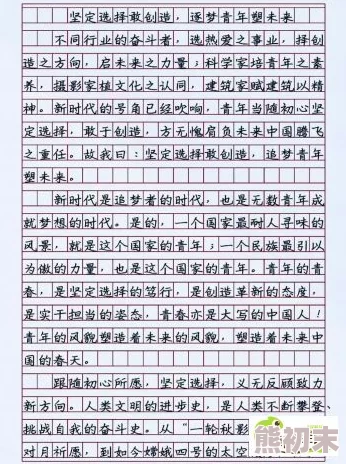 坚定选择敢创造，逐梦青年塑未来
不同行业的奋斗者，选热爱之事业，择创
造之方向，启未来之力量；科学家培青年之素
养，摄影家植文化之认同，建筑家赋建筑以精
神。新时代的号角已经吹响，青年当随初心坚
定选择，敢于创造，方无愧肩负未来中国腾飞
之重任。故我曰：坚定选择敢创造，追梦青年
塑未来。
新时代是追梦者的时代，也是无数青年成
就梦想的时代。是的，一个国家最耐人寻味的
风景，就是这个国家的青年；一个民族最引以
为傲的力量，也是这个国家的青年。青年的青
春，是坚定选择的笃行，是创造革新的态度，
是实干担当的姿态，青春亦是大写的中国人！
青年的风貌塑造着未来的风貌，塑造着未来中
国的春天。
跟随初心所愿，坚定选择，义无反顾致力
新方向。人类文明的进步史，是人类不断攀登、
挑战自我的奋斗史。从“一轮秋影
对月祈愿，到如今嫦娥四号的太空
熊初末